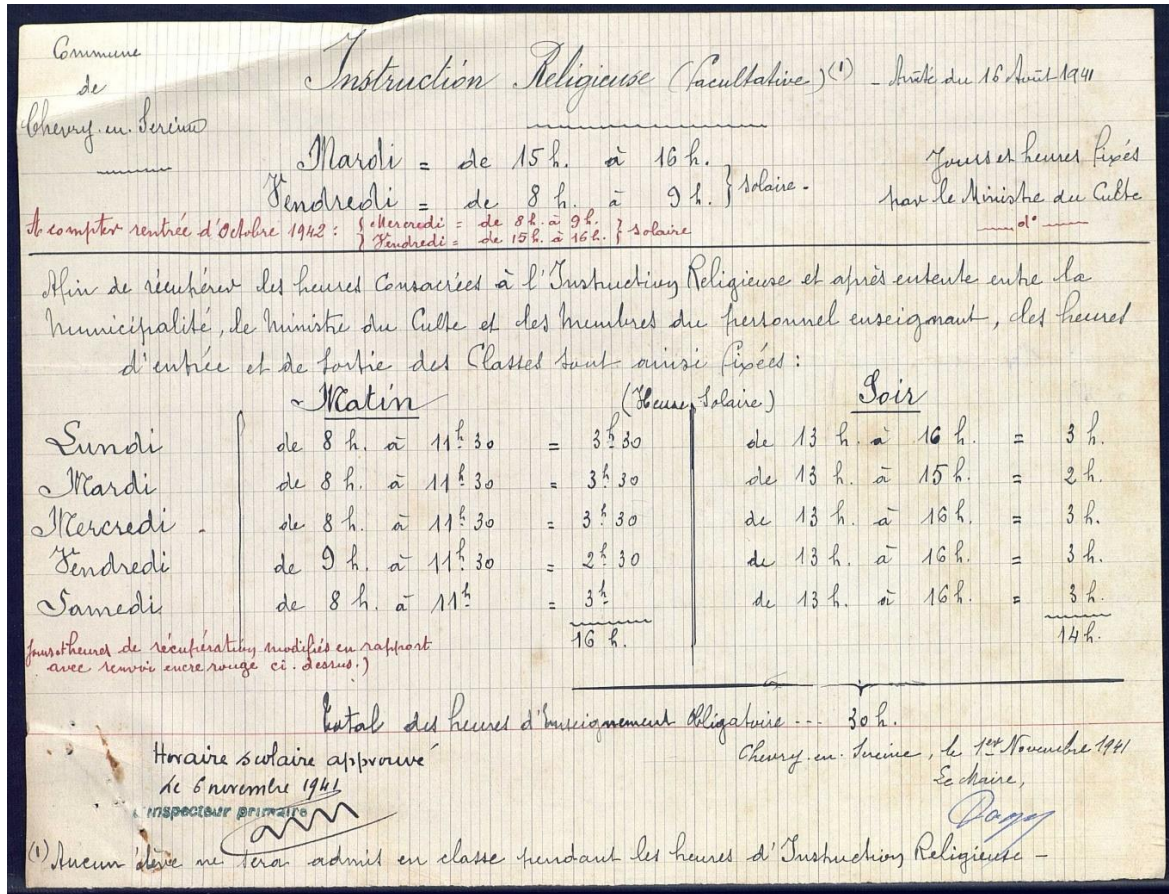 Commune
de
Chevry-en-Sereine
Instruction Religieuse (Facultative) (1) - Arrêté du 16 Août 1941
Mardi = de 15 h. à 16 h.
Vendredi = de 8 h. à 9 h. } solaire -
Jours et heures fixés
par le Ministre du Culte
A compter rentrée d'Octobre 1942 : { Mercredi = de 8 h. à 9 h.
} Vendredi = de 15 h. à 16 h. } solaire
d°
Afin de récupérer les heures consacrées à l'Instruction Religieuse et après entente entre la
Municipalité, le Ministre du Culte et les Membres du personnel enseignant, les heures
d'entrée et de sortie des Classes sont ainsi fixées :
Matin (Heure Solaire) Soir
Lundi de 8 h. à 11h 30 = 3h 30 de 13 h. à 16 h. = 3 h.
Mardi de 8 h. à 11h 30 = 3h 30 de 13 h. à 15 h. = 2 h.
Mercredi - de 8 h. à 11h 30 = 3h 30 de 13 h. à 16 h. = 3 h.
Vendredi de 9 h. à 11h 30 = 2h 30 de 13 h. à 16 h. = 3 h.
Samedi de 8 h. à 11h = 3h de 13 h. à 16 h. = 3 h.
16 h. 14 h.
Jours et heures de récupération modifiés en rapport
avec renvoi encre rouge ci-dessus.)
Total des heures d'Enseignement Obligatoire --- 30 h.
Horaire scolaire approuvé
le 6 novembre 1941
inspecteur primaire
Chevry-en-Sereine, le 1er Novembre 1941
Le Maire,
(1) Aucun élève ne sera admis en classe pendant les heures d'Instruction Religieuse -